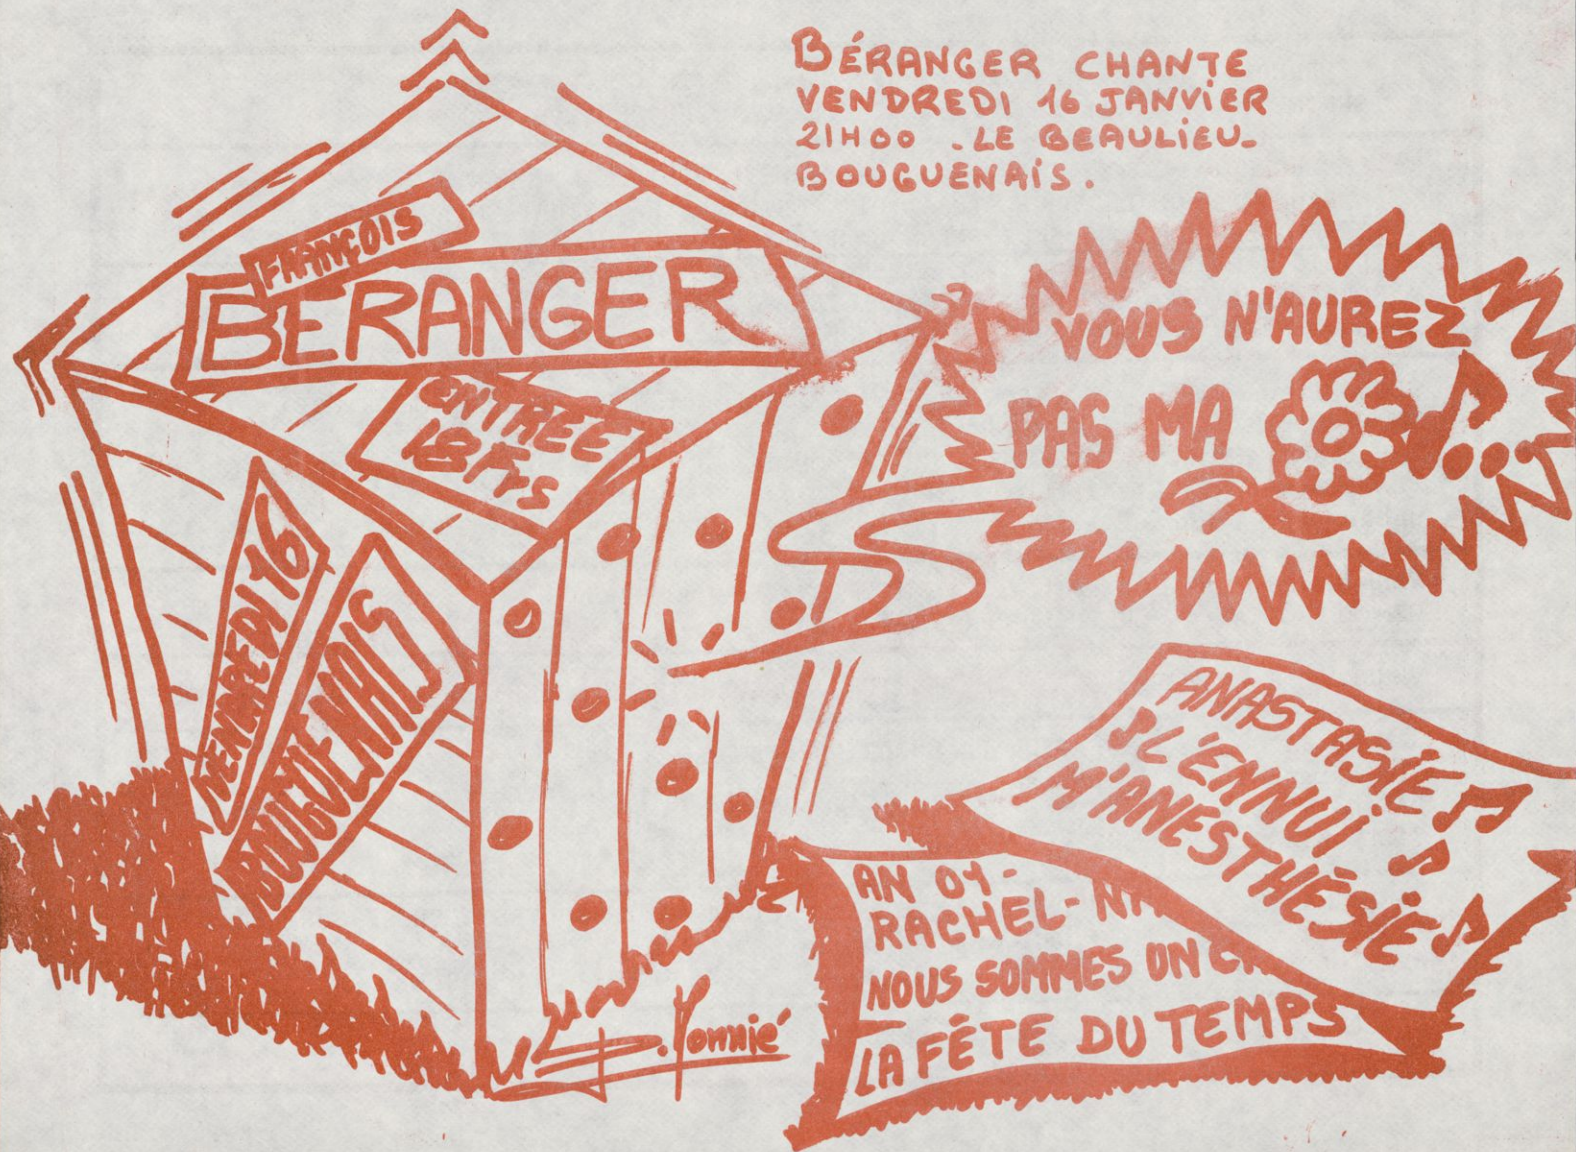 BÉRANGER CHANTE
VENDREDI 16 JANVIER
21H00 . LE BEAULIEU-
BOUGUENAIS.
FRANÇOIS
BÉRANGER
ENTRÉE
18 Frs
VENDREDI 16
BOUGUENAIS
VOUS N'AUREZ
PAS MA
ANASTASIE
L'ENNUI
M'ANESTHÉSIE
AN 01-
RACHEL-
NOUS SOMMES UN
LA FÊTE DU TEMPS
P. Monnié